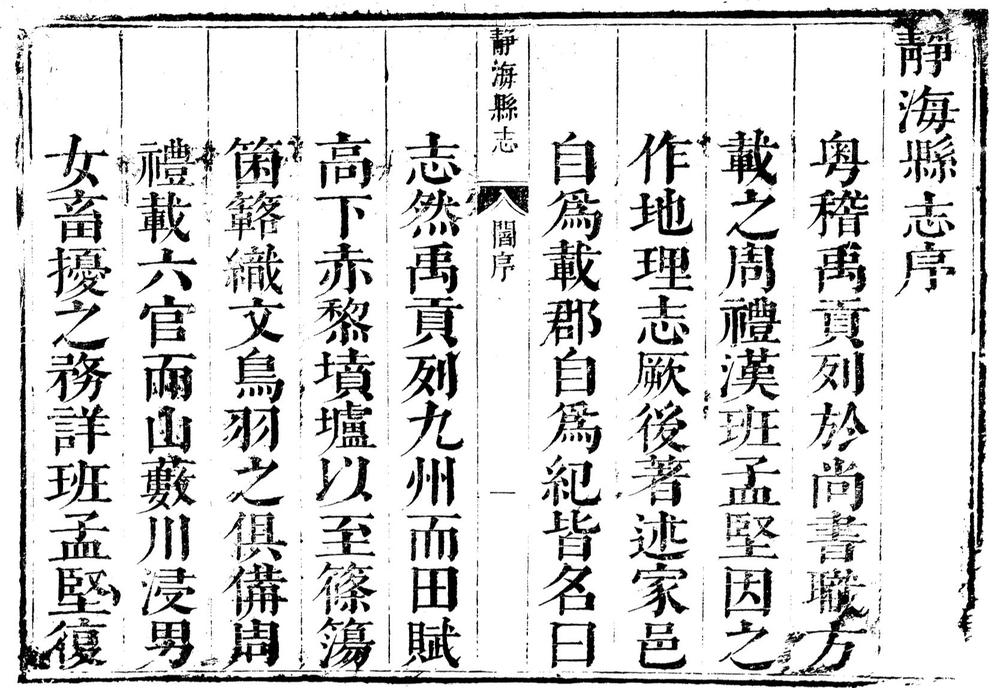 靜海縣志序
粵稽禹貢列於尚書職方
載之周禮漢班孟堅因之
作地理志厥後著述家邑
自爲載郡自爲紀皆名曰
靜海縣志
閻序
一
志然禹貢列九州而田賦
高下赤黎墳壚以至篠簜
箘簵織文鳥羽之俱備周
禮載六官而山藪川浸男
女畜擾之務詳班孟堅復